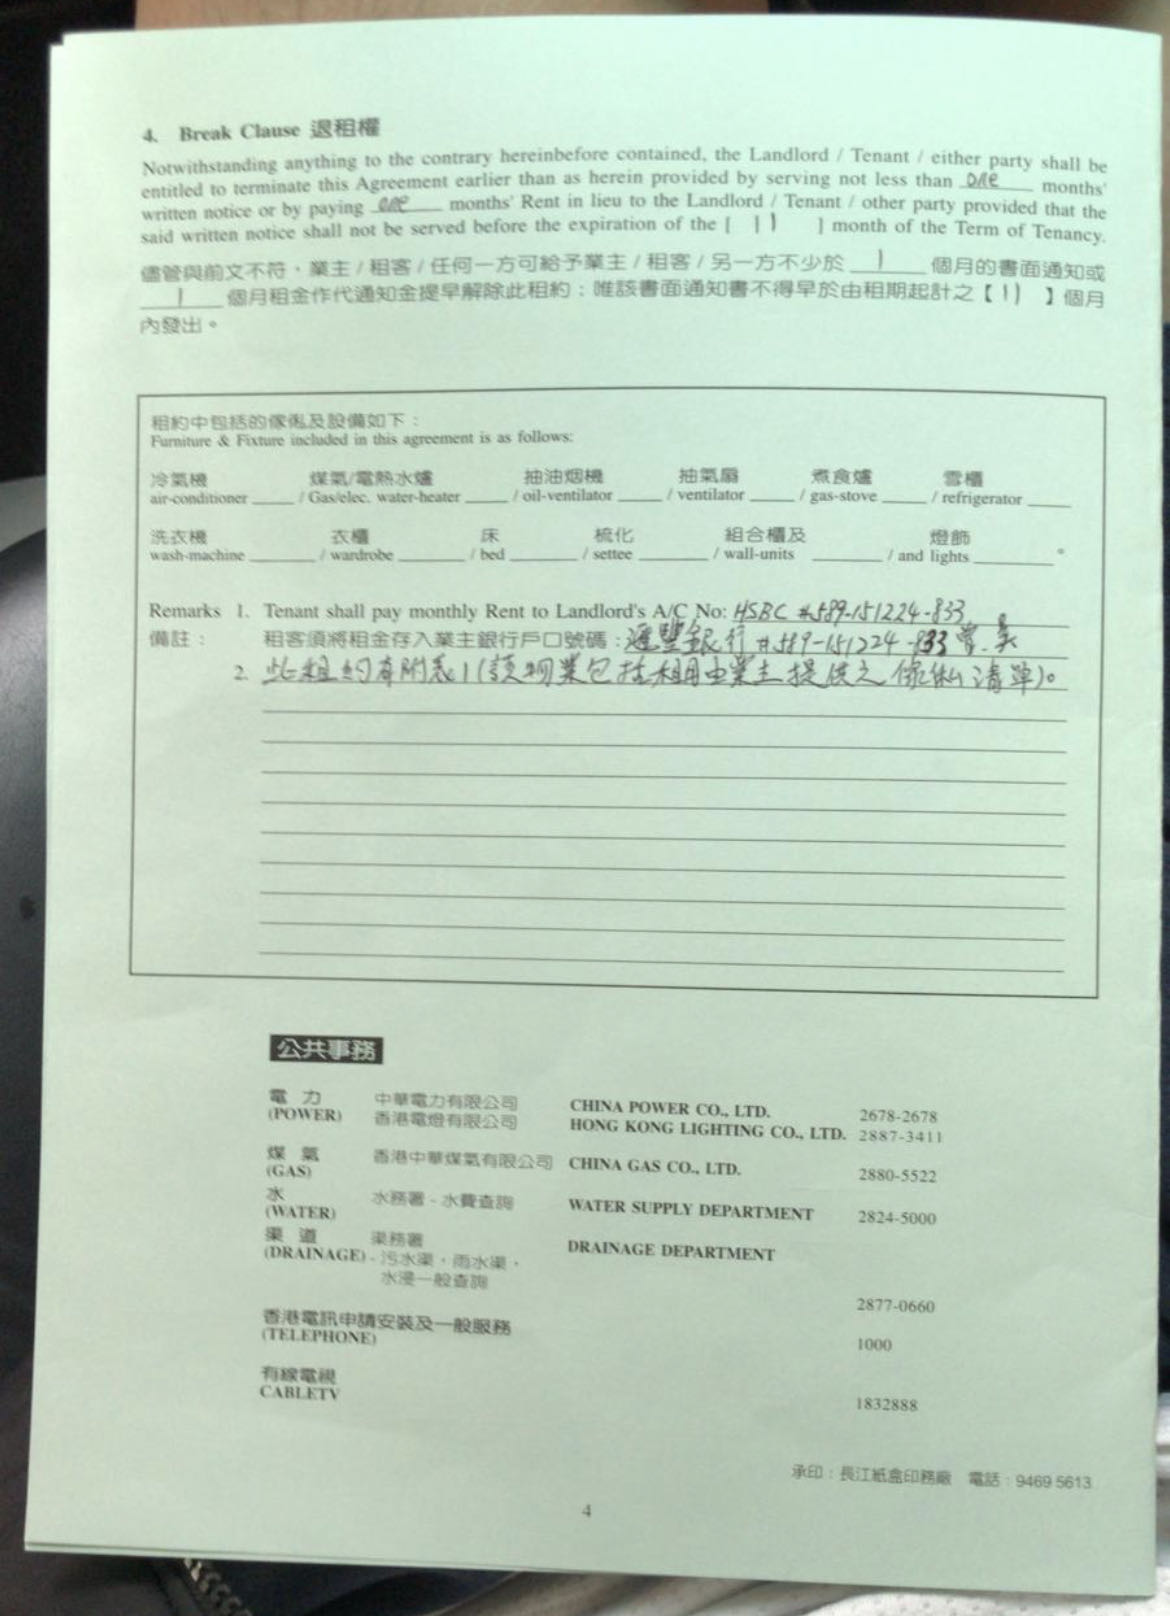 4. Break Clause 退租權
Notwithstanding anything to the contrary hereinbefore contained, the Landlord / Tenant / either party shall be
entitled to terminate this Agreement earlier than as herein provided by serving not less than one months'
written notice or by paying one months' Rent in lieu to the Landlord / Tenant / other party provided that the
said written notice shall not be served before the expiration of the [ 11 ] month of the Term of Tenancy.
儘管與前文不符，業主 / 租客 / 任何一方可給予業主 / 租客 / 另一方不少於 1 個月的書面通知或
1 個月租金作代通知金提早解除此租約；唯該書面通知書不得早於由租期起計之【 11 】個月
內發出。
租約中包括的傢俬及設備如下：
Furniture & Fixture included in this agreement is as follows:
冷氣機 煤氣/電熱水爐 抽油烟機 抽氣扇 煮食爐 雪櫃
air-conditioner / Gas/elec. water-heater / oil-ventilator / ventilator / gas-stove / refrigerator
洗衣機 衣櫃 床 梳化 組合櫃及 燈飾
wash-machine / wardrobe / bed / settee / wall-units / and lights 。
Remarks 1. Tenant shall pay monthly Rent to Landlord's A/C No: HSBC #589-151224-833
備註： 租客須將租金存入業主銀行戶口號碼：滙豐銀行 #589-151224-833
2. 此租約有附表1(該物業包括由業主提供之傢俬清單)。
公共事務
電力 中華電力有限公司 CHINA POWER CO., LTD. 2678-2678
(POWER) 香港電燈有限公司 HONG KONG LIGHTING CO., LTD. 2887-3411
煤氣 香港中華煤氣有限公司 CHINA GAS CO., LTD. 2880-5522
(GAS)
水 水務署 - 水費查詢 WATER SUPPLY DEPARTMENT 2824-5000
(WATER)
渠道 渠務署 DRAINAGE DEPARTMENT
(DRAINAGE) - 污水渠，雨水渠，
水浸一般查詢
2877-0660
香港電訊申請安裝及一般服務
(TELEPHONE) 1000
有線電視
CABLETV 1832888
承印：長江紙盒印務廠 電話：9469 5613
4